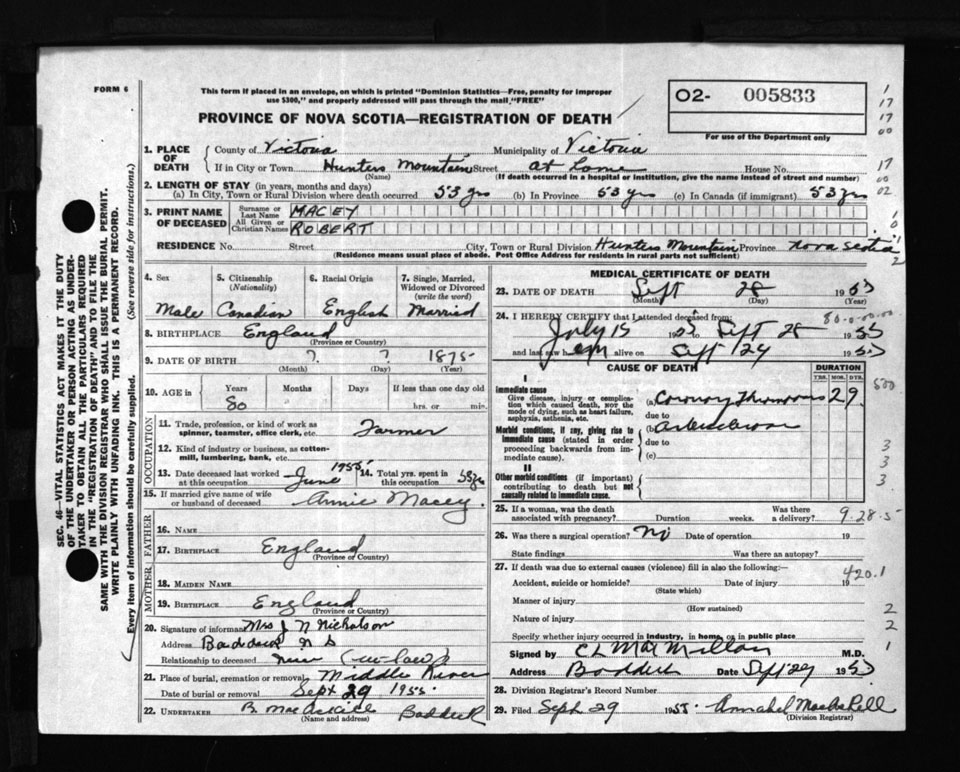 FORM 6
This form if placed in an envelope, on which is printed "Dominion Statistics—Free, penalty for improper
use $300," and properly addressed will pass through the mail "FREE"
O2- 005833
PROVINCE OF NOVA SCOTIA—REGISTRATION OF DEATH
For use of the Department only
1. PLACE OF DEATH
County of Victoria Municipality of Victoria
If in City or Town Hunters Mountain Street at House No.
(Name) (If death occurred in a hospital or institution, give the name instead of street and number)
2. LENGTH OF STAY (in years, months and days)
(a) In City, Town or Rural Division where death occurred 53 yrs (b) In Province 53 yrs (c) In Canada (if immigrant) 53 yrs
3. PRINT NAME OF DECEASED
Surname or Last Name MACEY
All Given or Christian Names ROBERT
RESIDENCE No. Street City, Town or Rural Division Hunters Mountain Province Nova Scotia
(Residence means usual place of abode. Post Office Address for residents in rural parts not sufficient)
4. Sex 5. Citizenship (Nationality) 6. Racial Origin 7. Single, Married, Widowed or Divorced (write the word)
Male Canadian English Married
8. BIRTHPLACE England
(Province or Country)
9. DATE OF BIRTH ? ? 1875
(Month) (Day) (Year)
10. AGE in Years Months Days If less than one day old
80 hrs. or min.
OCCUPATION
11. Trade, profession, or kind of work as spinner, teamster, office clerk, etc. Farmer
12. Kind of industry or business, as cotton-mill, lumbering, bank, etc.
13. Date deceased last worked at this occupation June 1955 14. Total yrs. spent in this occupation 58 yrs
15. If married give name of wife or husband of deceased Annie Macey
FATHER
16. NAME
17. BIRTHPLACE England
(Province or Country)
MOTHER
18. MAIDEN NAME
19. BIRTHPLACE England
(Province or Country)
20. Signature of informant Mrs J N Nicholson
Address Baddeck N S
Relationship to deceased (in-law)
21. Place of burial, cremation or removal Middle River
Date of burial or removal Sept 29 1955
22. UNDERTAKER B. MacAskill Baddeck
(Name and address)
MEDICAL CERTIFICATE OF DEATH
23. DATE OF DEATH Sept 28 1955
(Month) (Day) (Year)
24. I HEREBY CERTIFY that I attended deceased from:
80-0-00-00
July 15 1955 Sept 28 1955
and last saw him alive on Sept 24 1955
CAUSE OF DEATH DURATION
YRS. MOS. DYS.
I
Immediate cause
Give disease, injury or complication which caused death, not the mode of dying, such as heart failure, asphyxia, asthenia, etc.
(a) Coronary Thrombosis 2 9
due to
Morbid conditions, if any, giving rise to immediate cause (stated in order proceeding backwards from immediate cause).
(b)
due to
(c)
II
Other morbid conditions (if important) contributing to death but not causally related to immediate cause.
25. If a woman, was the death associated with pregnancy? Duration weeks. Was there a delivery?
9-28-5
26. Was there a surgical operation? No Date of operation 19
State findings Was there an autopsy?
27. If death was due to external causes (violence) fill in also the following:—
420.1
Accident, suicide or homicide? Date of injury 19
(State which)
Manner of injury
(How sustained)
Nature of injury
Specify whether injury occurred in industry, in home, or in public place
Signed by C L MacMillan M.D.
Address Baddeck Date Sept 29 1955
28. Division Registrar's Record Number
29. Filed Sept 29 1955 Annabel MacAskill
(Division Registrar)
SEC. 46—VITAL STATISTICS ACT MAKES IT THE DUTY
OF THE UNDERTAKER OR PERSON ACTING AS UNDER-
TAKER TO OBTAIN ALL THE PARTICULARS REQUIRED
IN THE "REGISTRATION OF DEATH" AND TO FILE THE
SAME WITH THE DIVISION REGISTRAR WHO SHALL ISSUE THE BURIAL PERMIT.
WRITE PLAINLY WITH UNFADING INK. THIS IS A PERMANENT RECORD.
Every item of information should be carefully supplied. (See reverse side for instructions.)
1
17
17
00
17
00
02
1
0
11
2
500
3
3
3
2
2
1